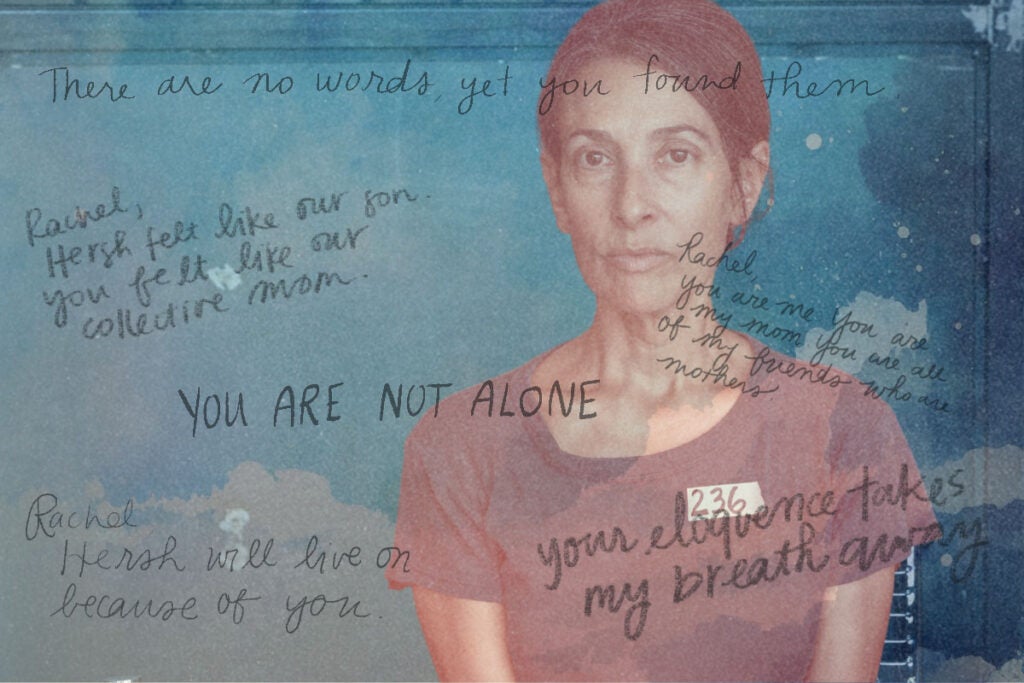 There are no words, yet you found them.
Rachel,
Hersh felt like our son.
you felt like our
collective mom.
Rachel,
you are me you are
my mom you are all
of my friends who are
mothers
YOU ARE NOT ALONE
236
your eloquence takes
my breath away
Rachel
Hersh will live on
because of you.